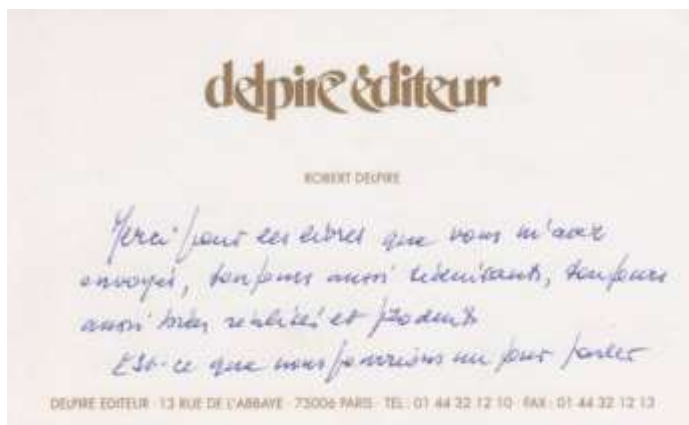 delpire éditeur
ROBERT DELPIRE
Merci pour les livres que vous m'avez
envoyés, toujours aussi séduisants, toujours
aussi bien réalisés et
Est-ce que nous pourrions un jour parler
DELPIRE EDITEUR · 13 RUE DE L'ABBAYE · 75006 PARIS · TEL : 01 44 32 12 10 · FAX : 01 44 32 12 13